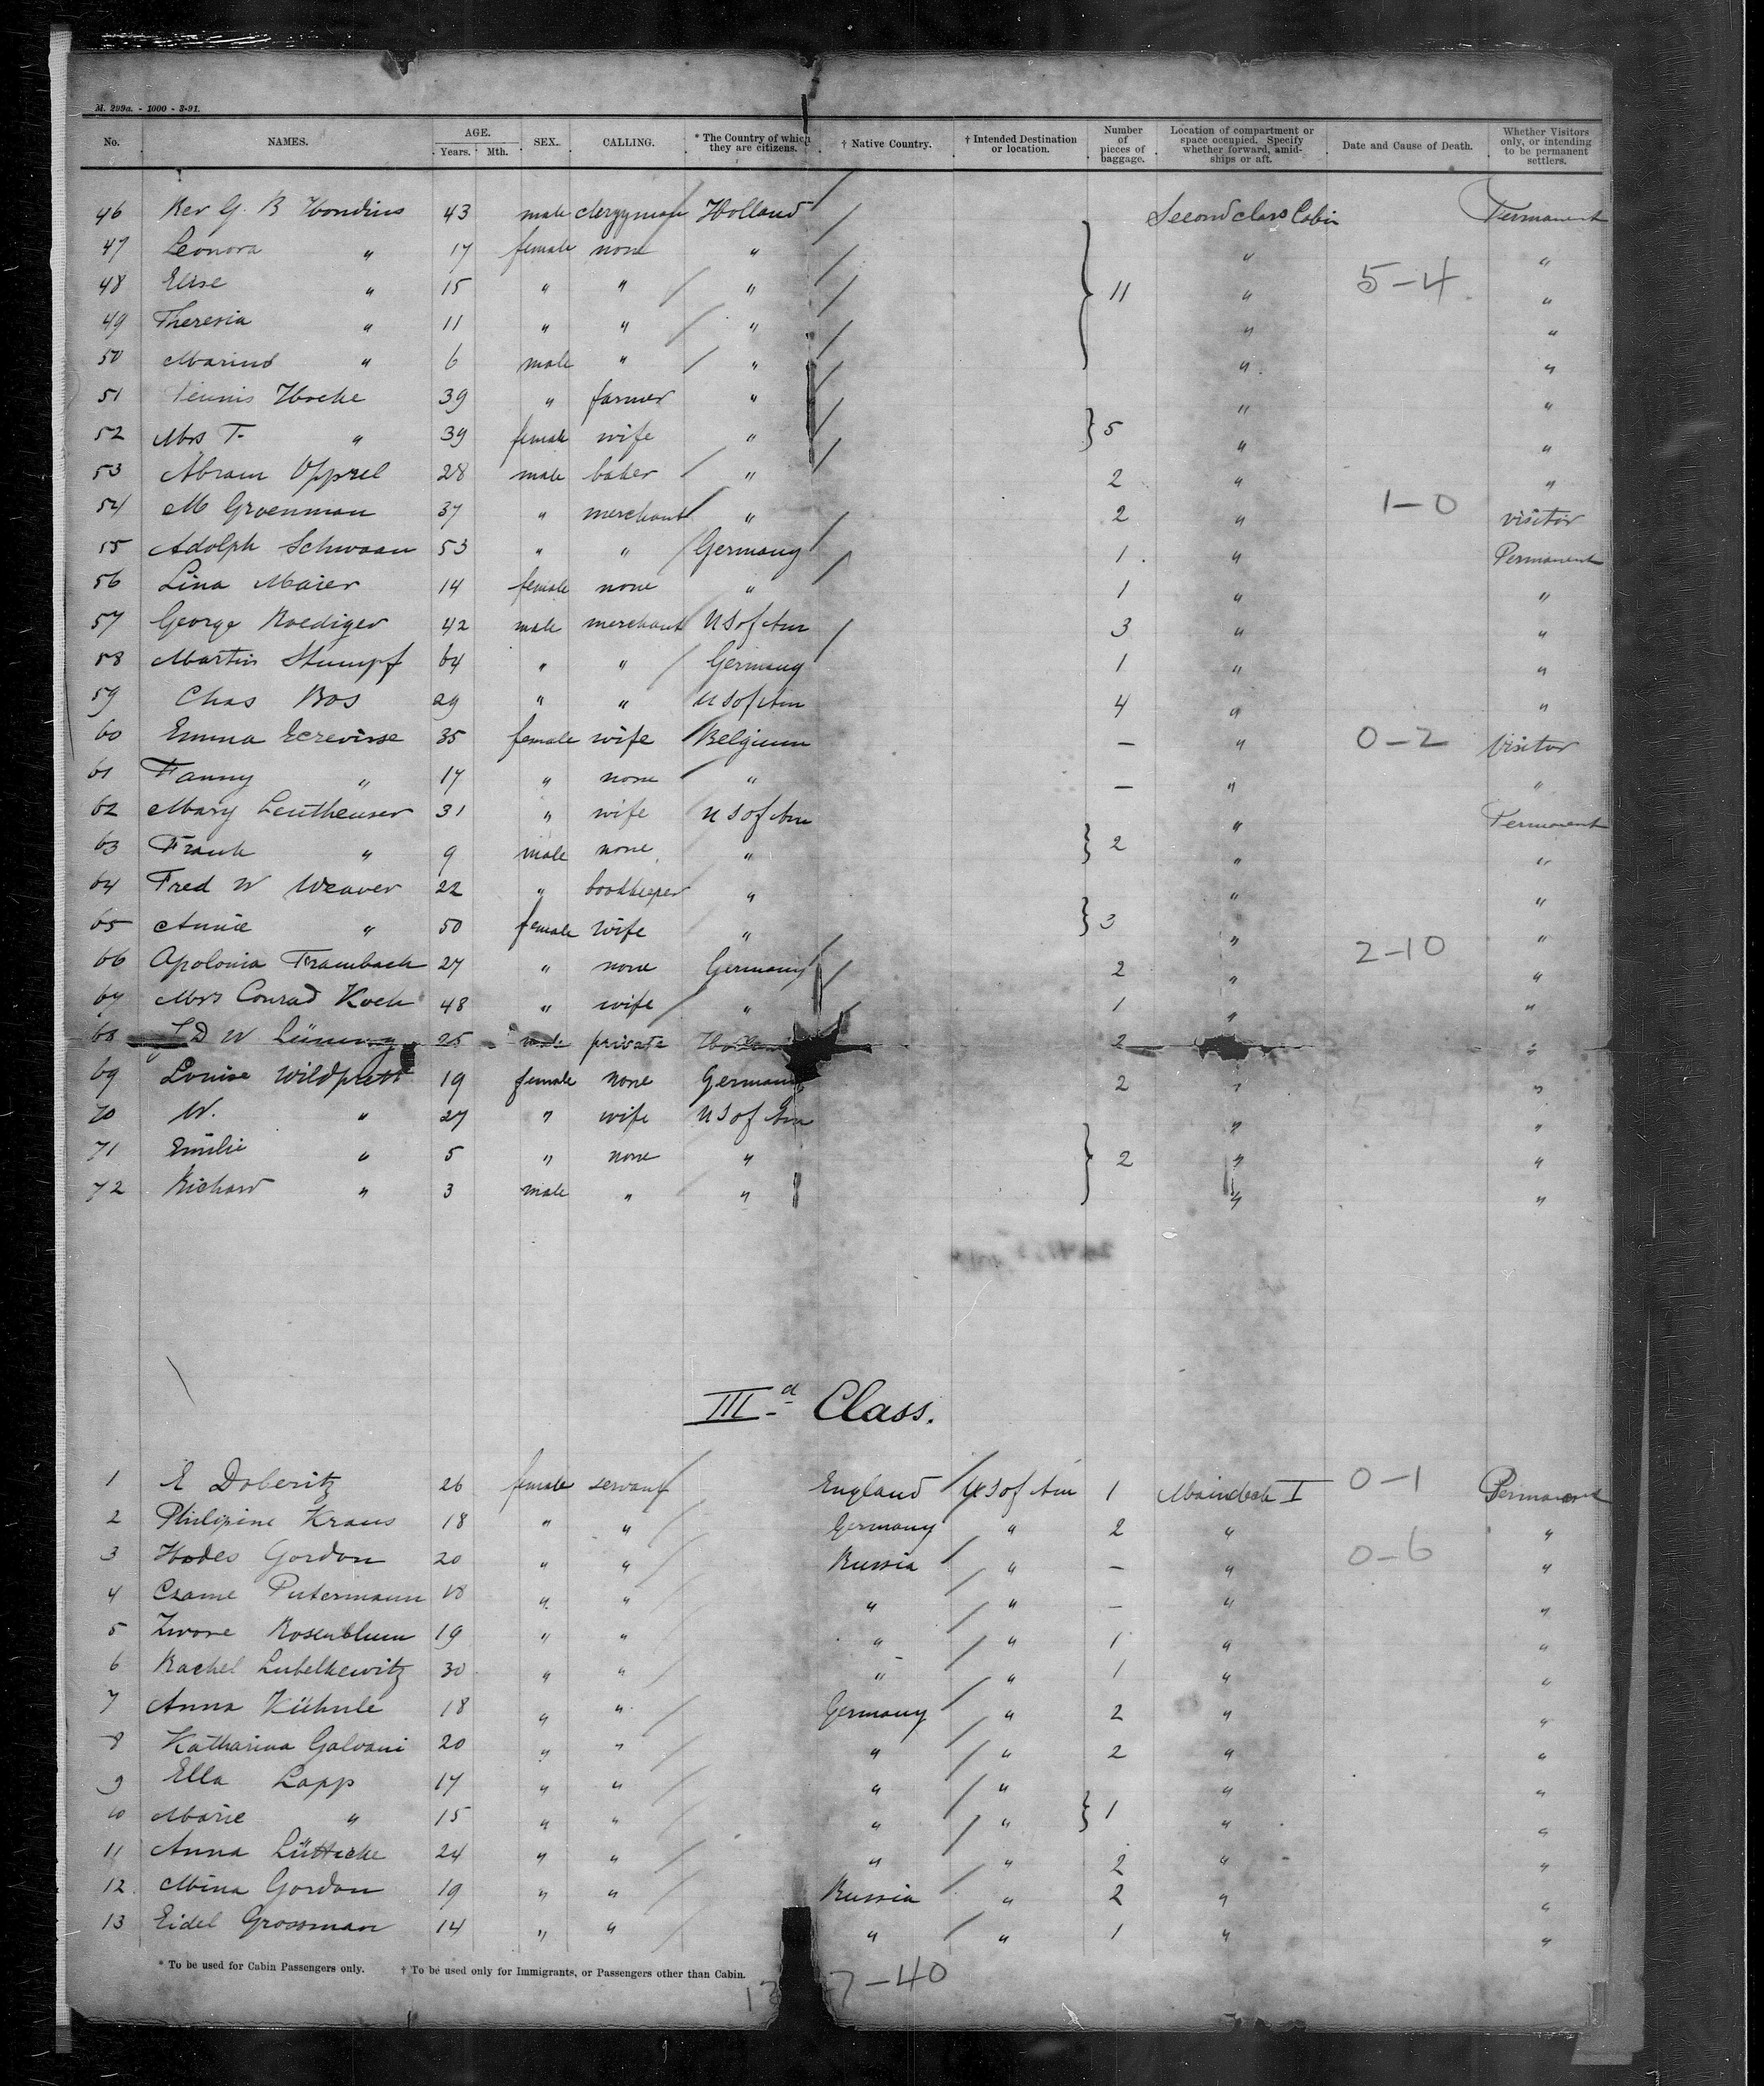 M. 299a. - 1000 - 3-91.
No. NAMES. AGE. Years. Mth. SEX. CALLING. * The Country of which they are citizens. † Native Country. † Intended Destination or location. Number of pieces of baggage. Location of compartment or space occupied. Specify whether forward, amidships or aft. Date and Cause of Death. Whether Visitors only, or intending to be permanent settlers.
46 Rev G. B Hondius 43 male clergyman Holland Second class Cabin Permanent
47 Leonora " 17 female none " " "
48 Elise " 15 " " " 11 " 5-4 "
49 Theresia " 11 " " " " "
50 Marinus " 6 male " " " "
51 Teunis Hoeke 39 " farmer " " "
52 Mrs T. " 39 female wife " 5 " "
53 Abram Opprel 28 male baker " 2 " "
54 M Groenman 37 " merchant " 2 " 1-0 visitor
55 Adolph Schwaan 53 " " Germany 1 " Permanent
56 Lina Maier 14 female none " 1 " "
57 George Roediger 42 male merchant U S of Am 3 " "
58 Martin Stumpf 64 " " Germany 1 " "
59 Chas Bos 29 " " U S of Am 4 " "
60 Emma Ecrevisse 35 female wife Belgium — " 0-2 Visitor
61 Fanny " 17 " none " — " "
62 Mary Leutheuser 31 " wife U S of Am " Permanent
63 Frank " 9 male none " 2 " "
64 Fred W Weaver 22 " bookkeeper " " "
65 Annie " 50 female wife " 3 " "
66 Apolonia Trambach 27 " none Germany 2 " 2-10 "
67 Mrs Conrad Koch 48 " wife " 1 " "
68 D W 25 male private Holland 2 "
69 Louise Wildprett 19 female none Germany 2 " "
70 W. " 27 " wife U S of Am " "
71 Emilie " 5 " none " 2 " "
72 Richard " 3 male " " " "
IIId Class.
1 E Doberitz 26 female servant England U S of Am 1 Maindeck I 0-1 Permanent
2 Philipine Kraus 18 " " Germany " 2 " "
3 Hodes Gordon 20 " " Russia " — " 0-6 "
4 Czame Putermann 18 " " " " — " "
5 Zwore Rosenblum 19 " " " " 1 " "
6 Rachel Lubelkewitz 30 " " " " 1 " "
7 Anna Kühnle 18 " " Germany " 2 " "
8 Katharina Galvani 20 " " " " 2 " "
9 Ella Lapp 17 " " " " " "
10 Marie " 15 " " " " 1 " "
11 Anna Lüttecke 24 " " " " 2 " "
12 Mina Gordon 19 " " Russia " 2 " "
13 Eidel Grossman 14 " " " " 1 " "
* To be used for Cabin Passengers only. † To be used only for Immigrants, or Passengers other than Cabin.
7-40